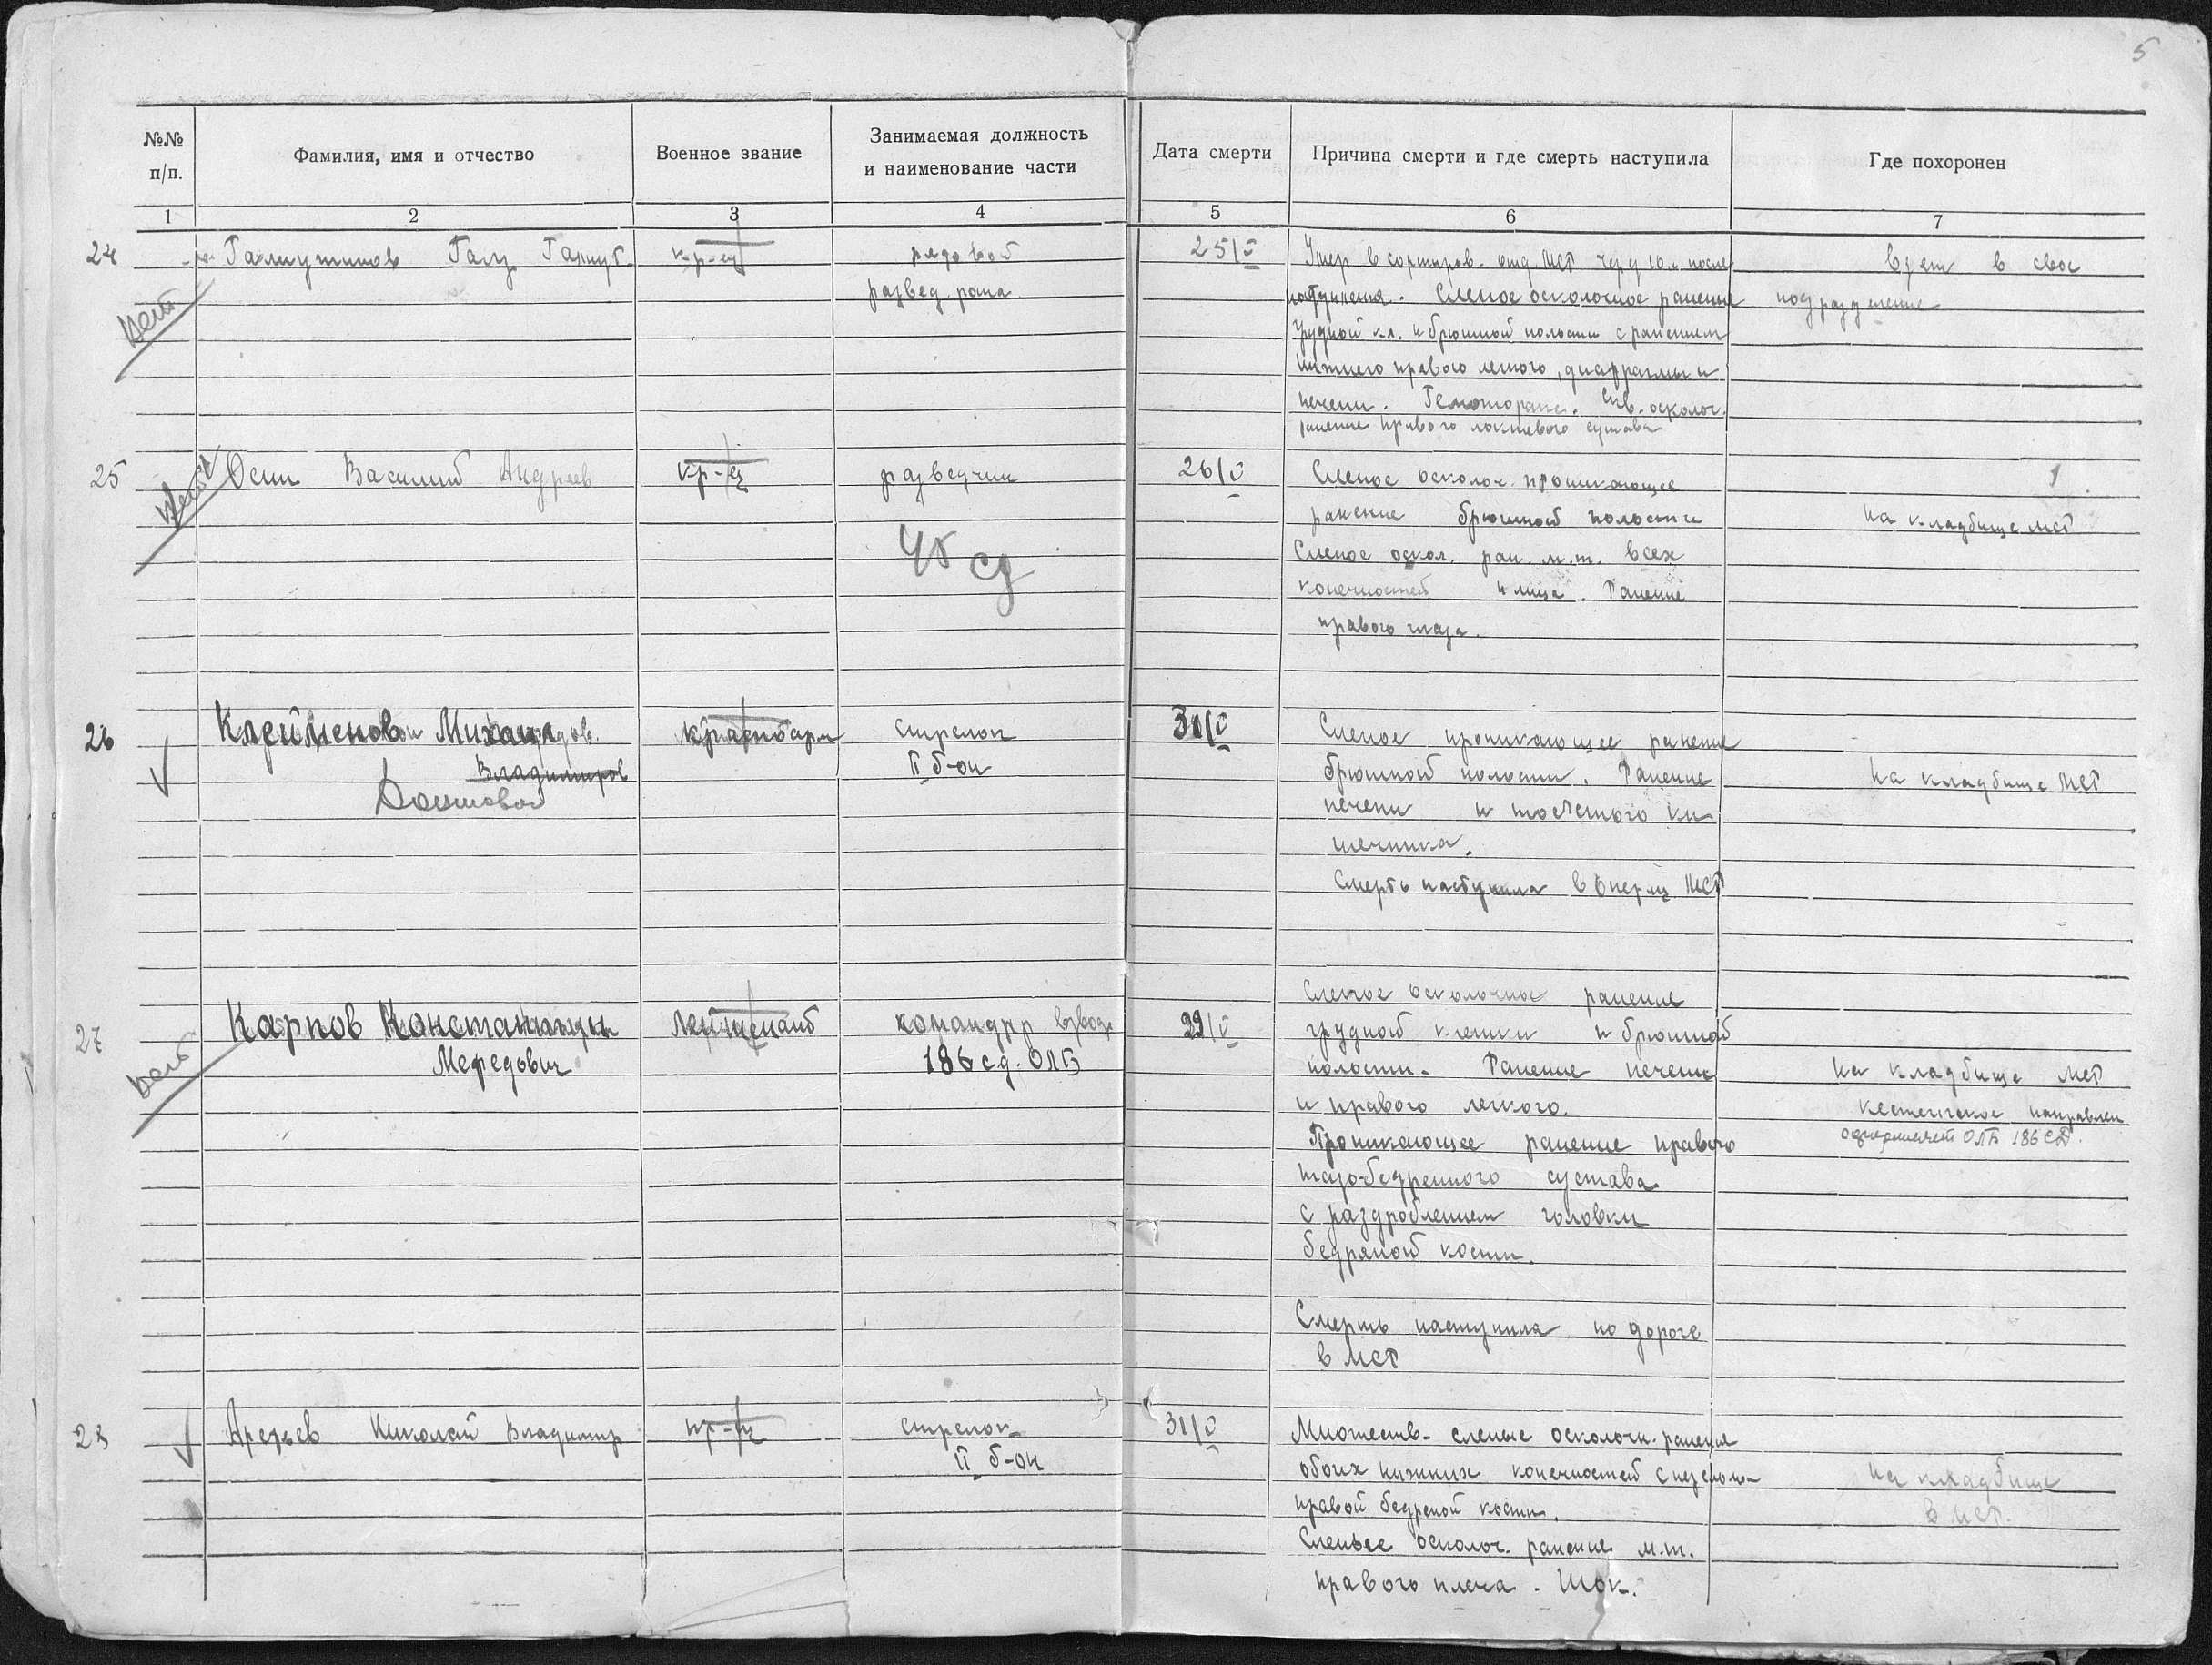 5
№№ п/п.
Фамилия, имя и отчество
Военное звание
Занимаемая должность и наименование части
Дата смерти
Причина смерти и где смерть наступила
Где похоронен
1 2 3 4 5 6 7
24
кр-ец
рядовой
25/V
Умер в сортиров. отд. МСР через 10 м. после
взят в свое
развед. рота
Слепое осколочное ранение
подразделение
грудной кл. и брюшной полости с ранением
нижнего правого легкого, диафрагмы и
печени. осколоч.
ранение правого локтевого сустава
25
Осин Василий Андреев
кр-ец
разведчик
26/V
Слепое осколоч. проникающее
1
ранение брюшной полости
на кладбище МСР
Слепое оскол. ран. м.т. всех
конечностей и лица. Ранение
правого глаза.
26
Клейменов Михаил
Владимиров
красноарм
стрелок
II б-он
31/V
Слепое проникающее ранение
брюшной полости. Ранение
на кладбище МСР
печени и толстого ки-
шечника.
Смерть наступила в МСР
27
Карпов Константин
лейтенант
командир взвода
186 сд. ОЛБ
29/V
Слепое осколочное ранение
грудной клетки и брюшной
полости. Ранение печени
на кладбище МСР
и правого легкого.
кестеньгское направлен
Проникающее ранение правого
ОЛБ 186 СД.
тазо-бедренного сустава
с раздроблением головки
бедряной кости.
Смерть наступила по дороге
в МСР
28
Николай Владимир
кр-ец
стрелок
II б-он
31/V
Множеств. слепые осколочн. ранения
обоих нижних конечностей с
на кладбище
правой бедреной кости.
в МСР.
Слепые осколоч. ранение м.т.
правого плеча. Шок.